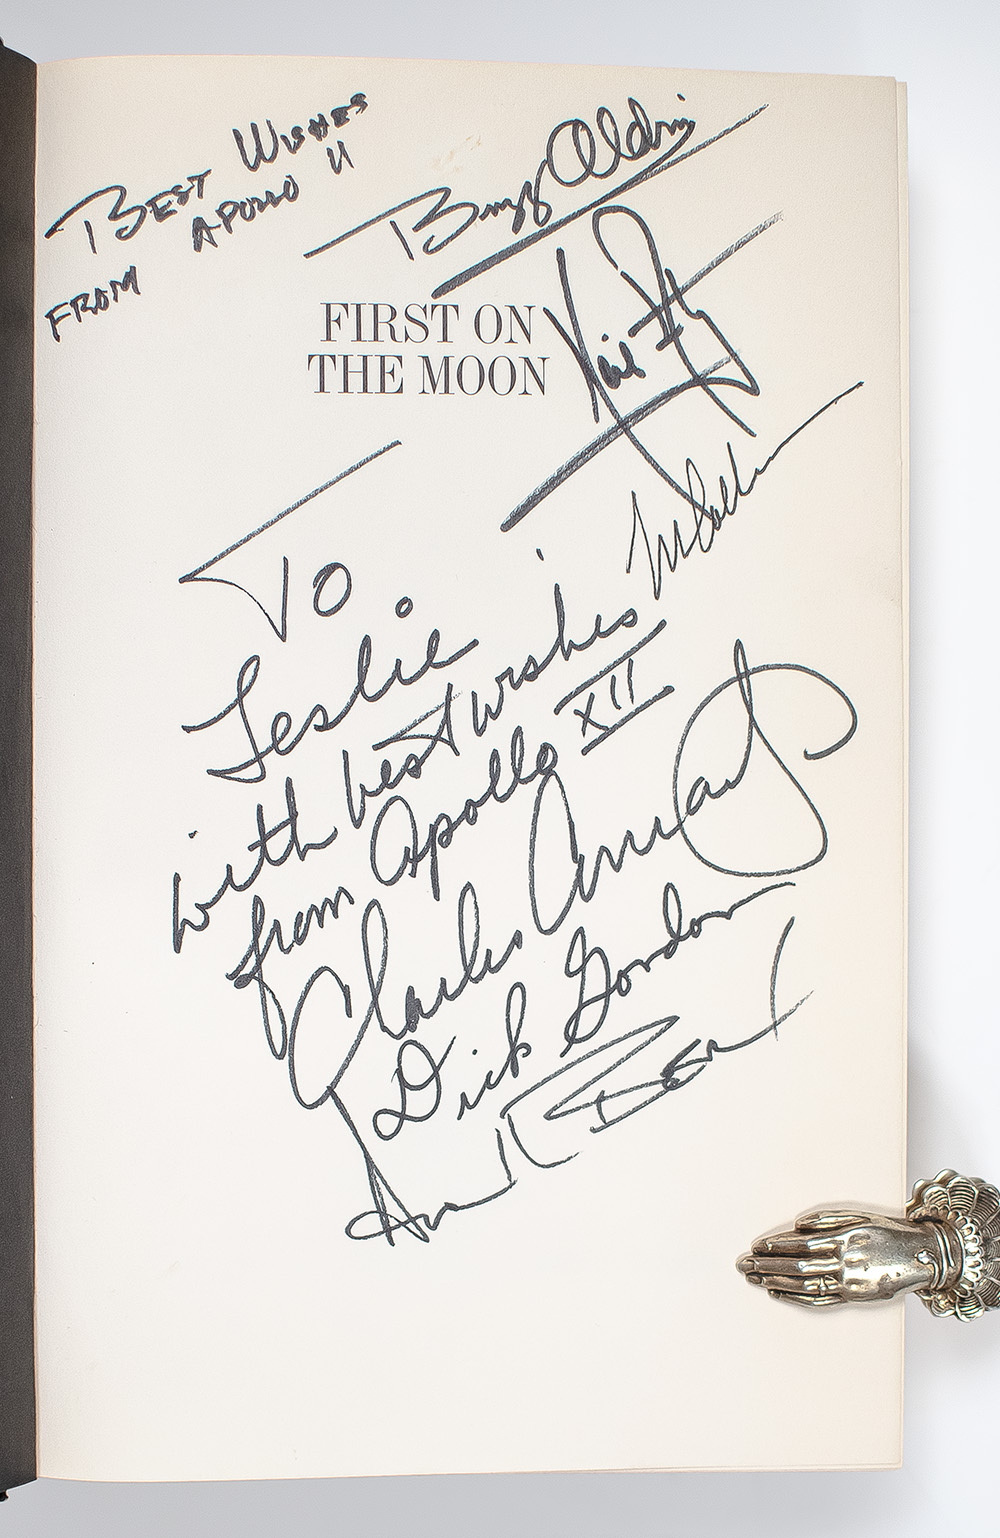 BEST WISHES
FROM APOLLO 11
Buzz Aldrin
FIRST ON
THE MOON
M Collins
TO
Leslie
with best wishes
from Apollo XII
Charles Conrad Jr
Dick Gordon
Alan Bean